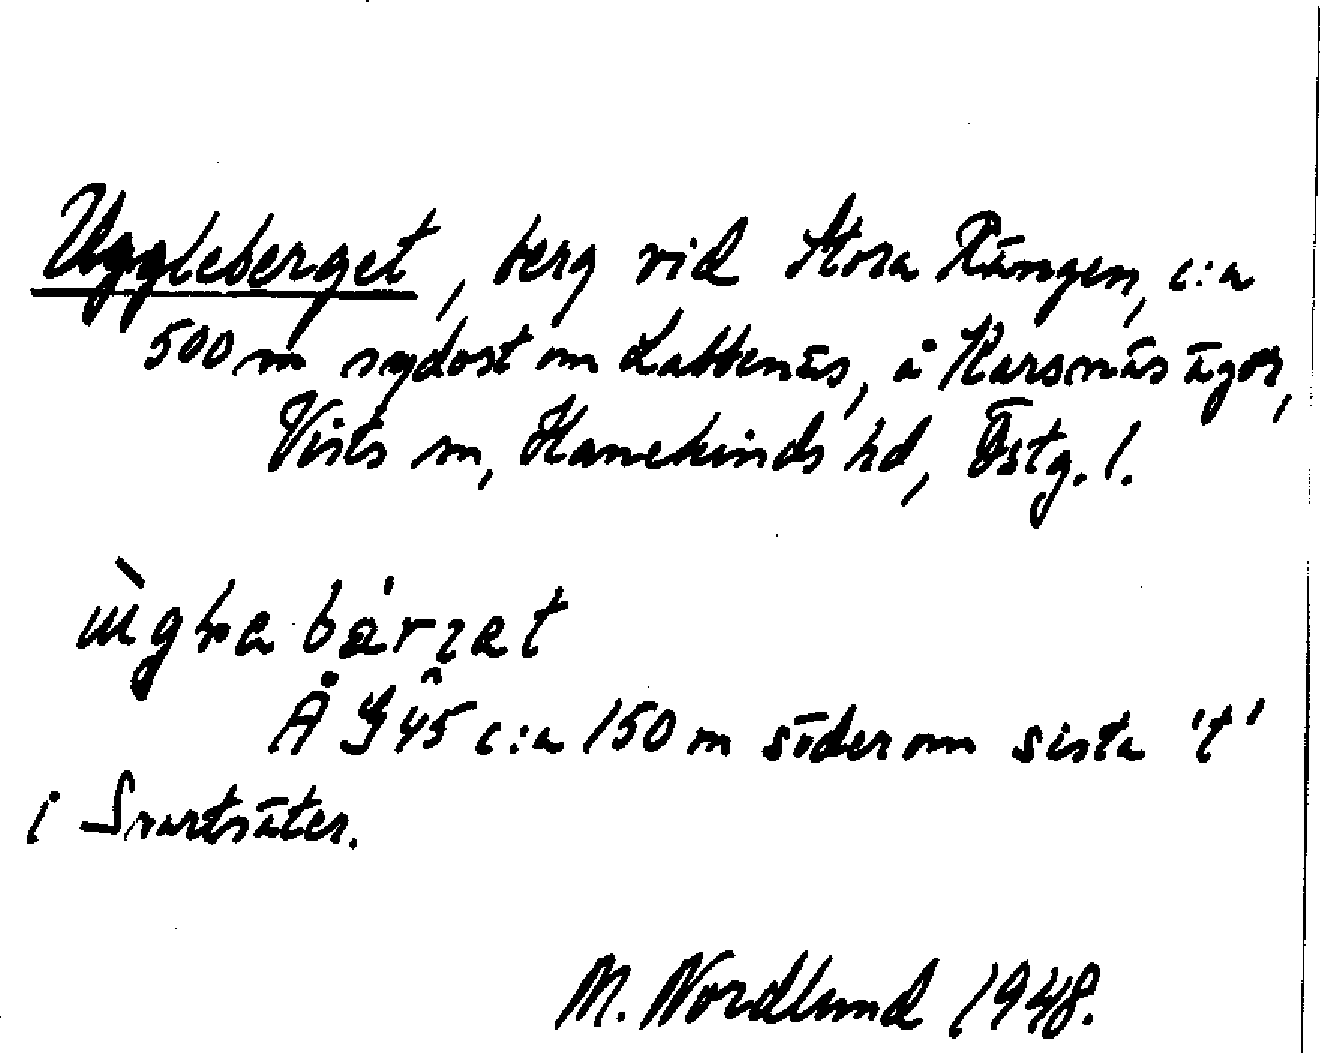 Uggleberget, berg vid Stora Rängen, c:a
500 m sydost om Labbenäs, å Karsnäs ägor,
Vists sn, Hanekinds hd, Östg. l.
Å G 45 c:a 150 m söder om sista 't'
i Svartsäter.
M. Nordlund 1948.